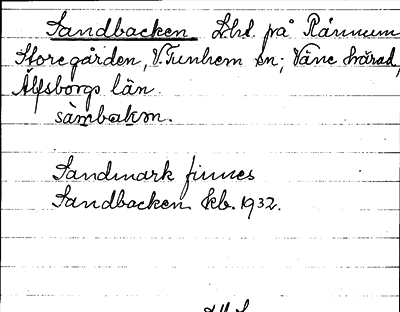 Sandbacken Lht. på Rånnum
Storegården, V. Tunhem sn; Väne härad,
Älfsborgs län.
sàmbakɘn.
Sandmark finnes
Sandbacken kb. 1932.